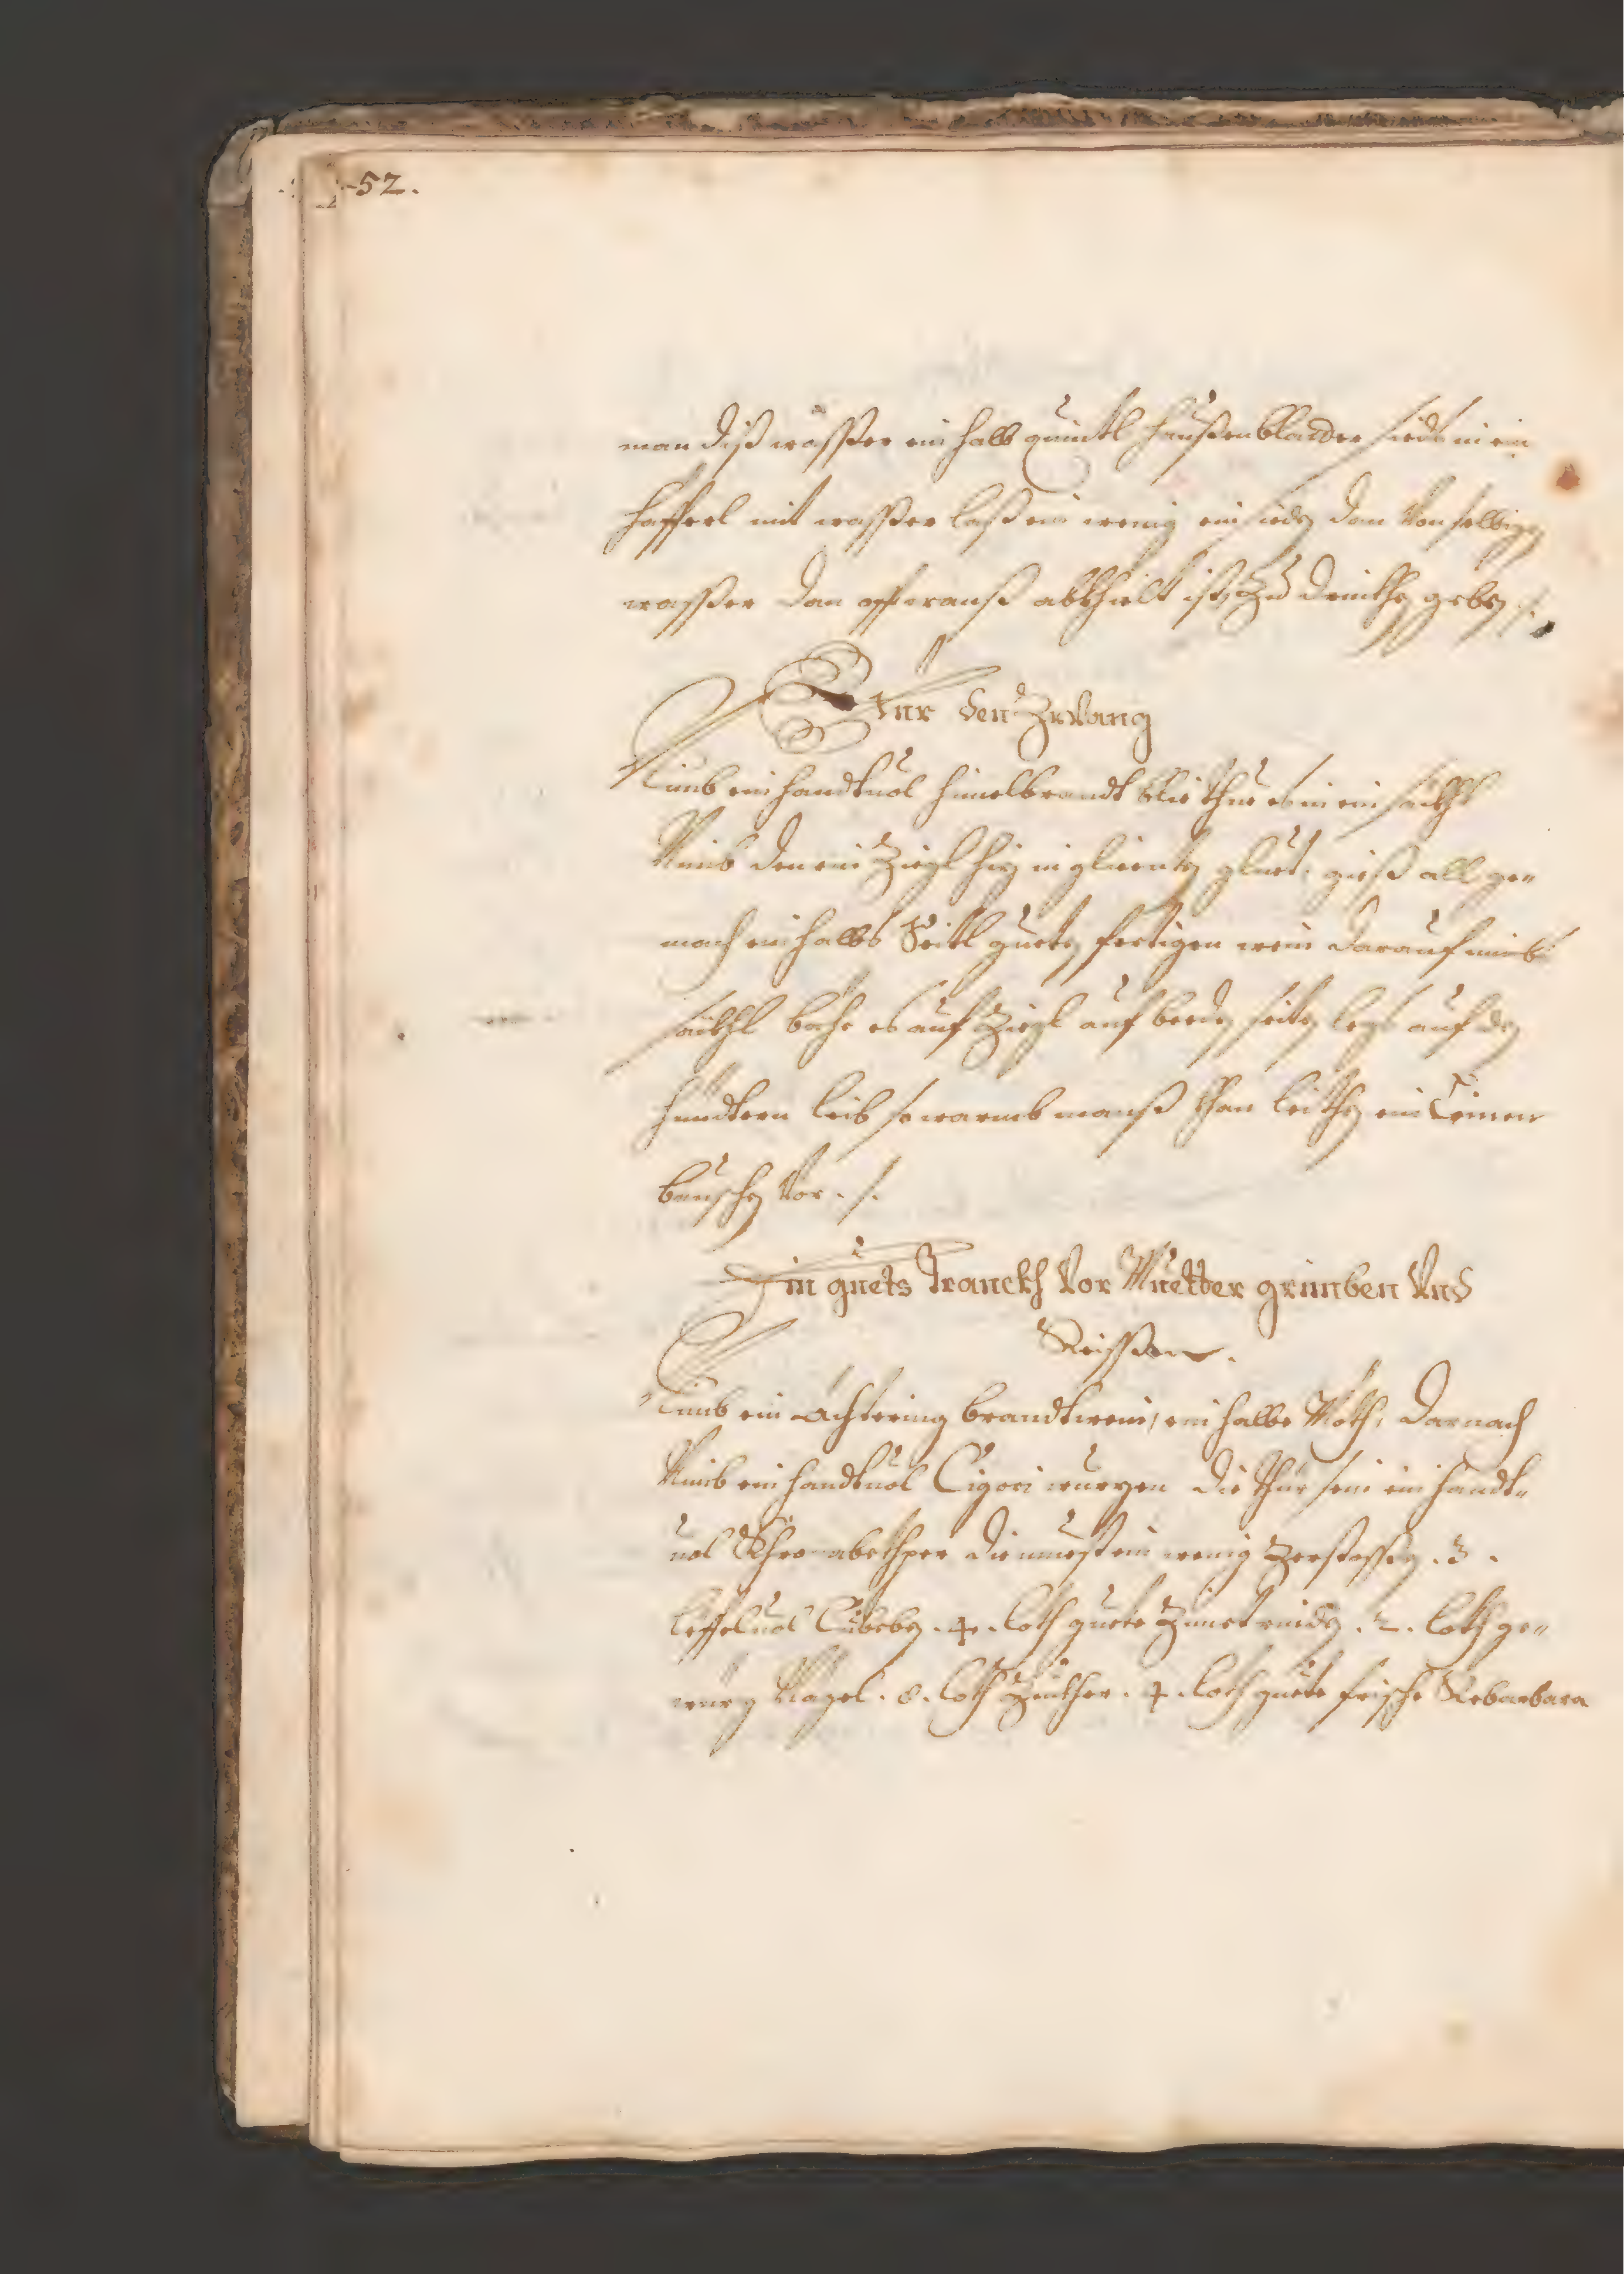 52.
man diß wasser ein halb quintl haußenblader siedt in ein
hafferl mit wasser laß ein wenig ein siedn dan von selbign
wasser dan offt wanß abkhielt ist, zu drinkhn gebn ./.
Für den Zwang
Nimb ein handtuol himelbrandt thue es in ein säckhl
Nimb den ein Ziegl hiz in glientn gluet, gieß all ge„
mach ein halbs Seitl guetn fertigen wein darauf nimb
säckhl bache es auf Ziegl auf beedn seitn legs auf dn
hindtern leib so warmb manß khan leithn ein
bauschn vor ./.
Ein guets Tranckh vor Muetter grimben vnd
Reissen.
Nimb ein achtering brandtwein, ein halbe Möth, darnach
Nimb ein handtuol Cigori wurzen die thür sein ein handt„
uol Khronabethper die muest ein wenig zerstossn . 3 .
löffeluol Cubebn . 4 . loth guete Zimetrindn . 2 . loth ge„
würz Nagel . 8 . loth Zuckher . 4 . loth guete frische Rebarbara